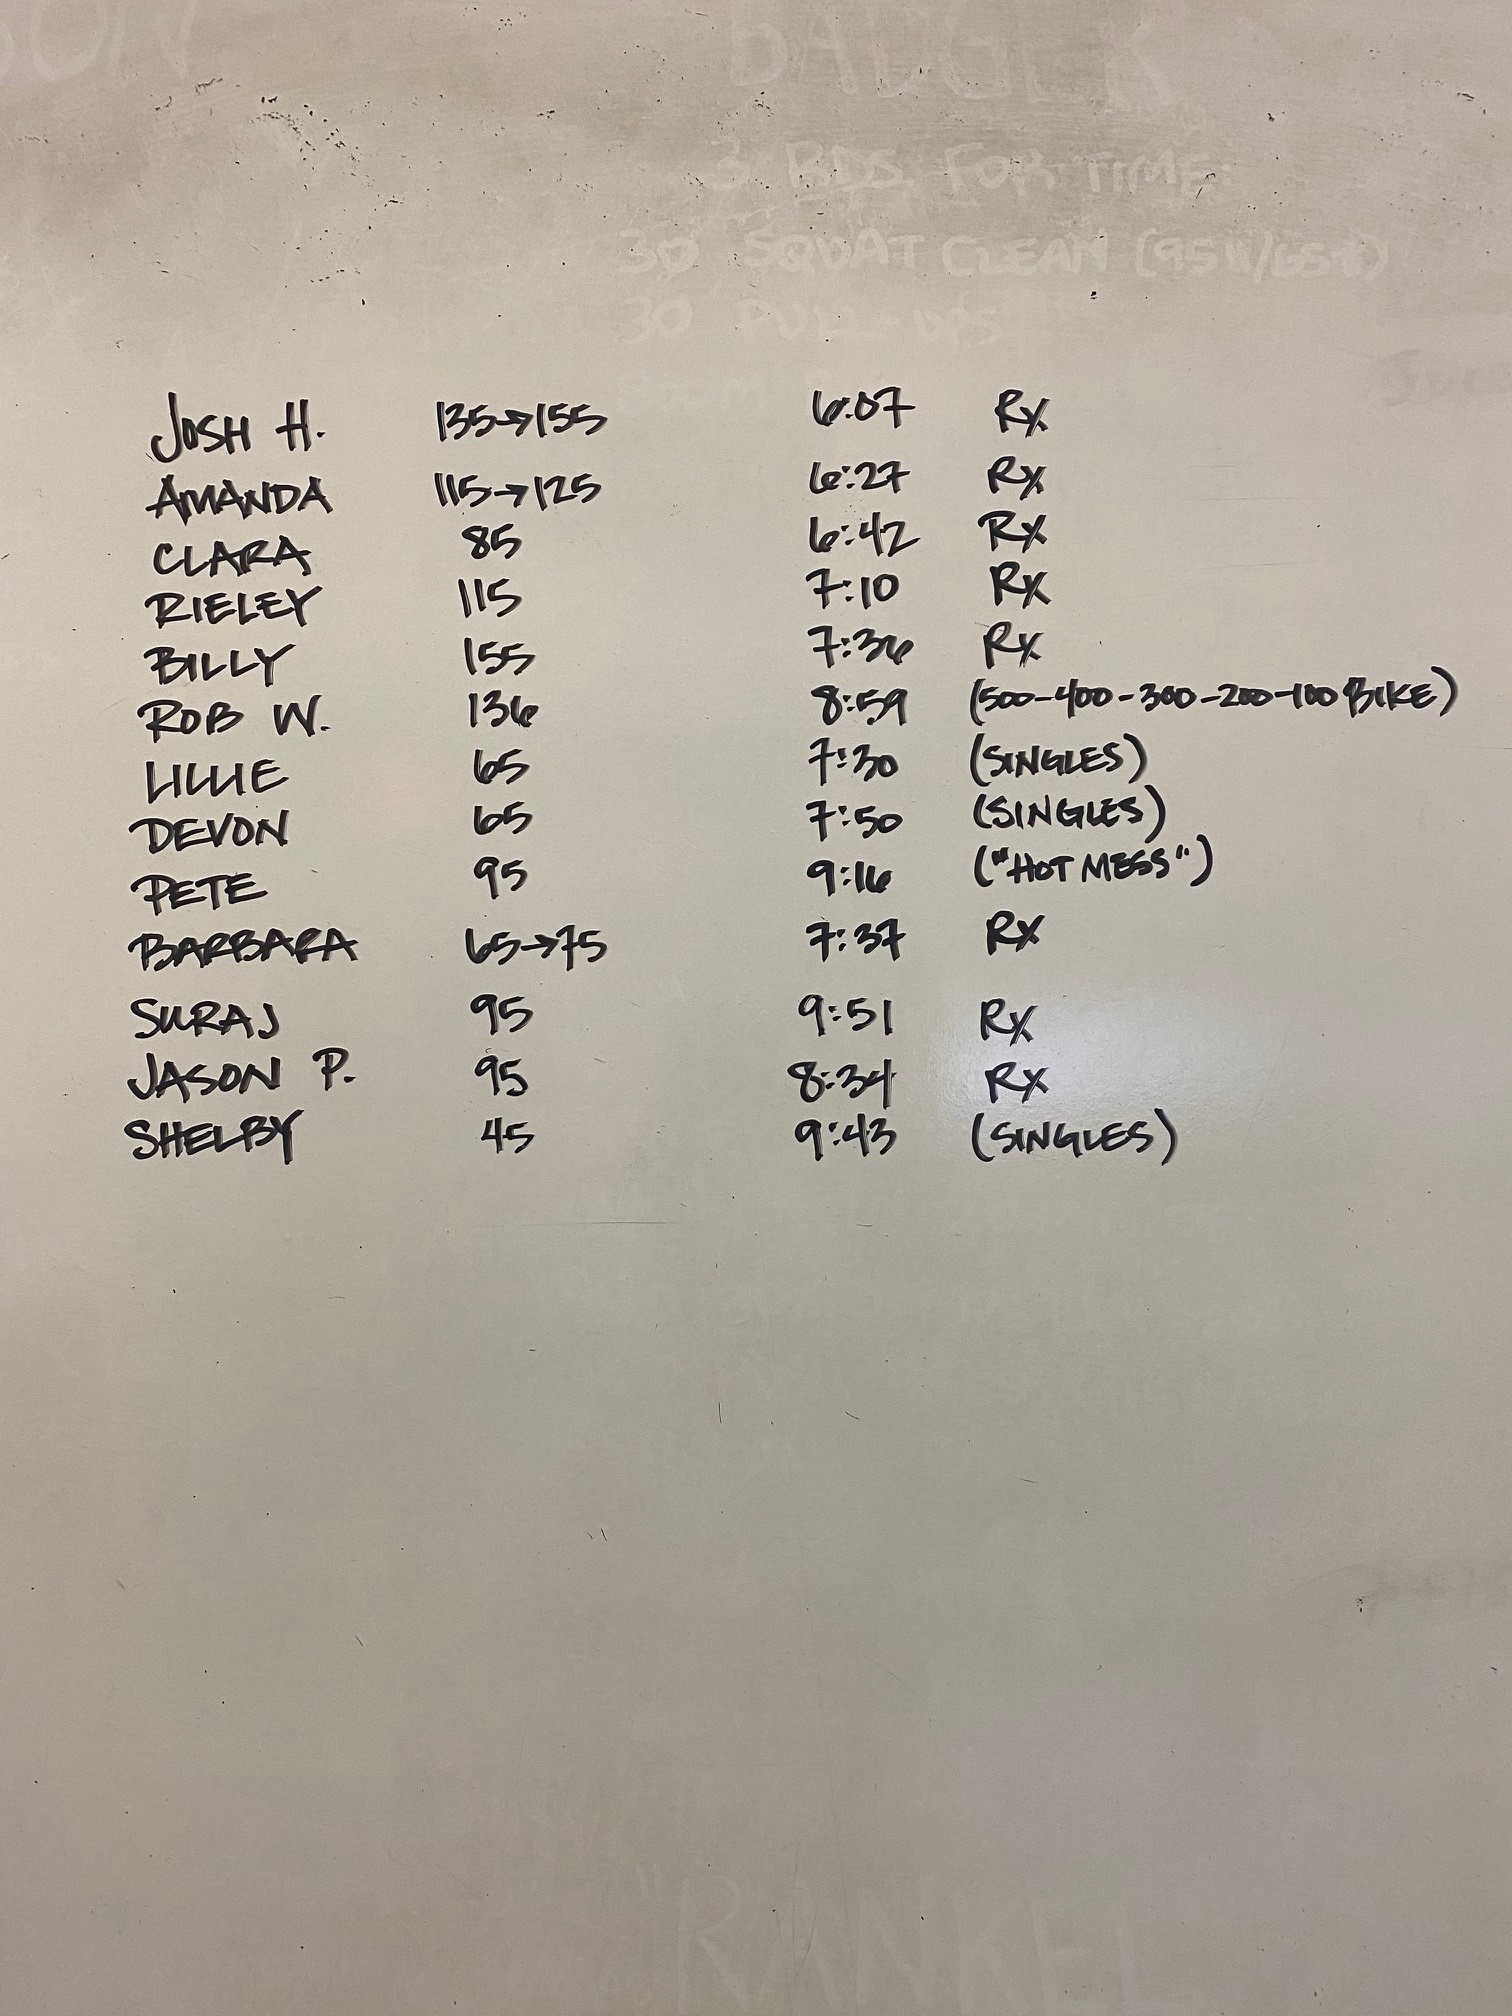 BADGER
3 RDS. FOR TIME:
30 SQUAT CLEAN (95#/65#)
30 PULL-UPS
JOSH H. 135→155 6:07 Rx
AMANDA 115→125 6:27 Rx
CLARA 85 6:42 Rx
RIELEY 115 7:10 Rx
BILLY 155 7:36 Rx
ROB W. 136 8:59 (500-400-300-200-100 BIKE)
LILLIE 65 7:30 (SINGLES)
DEVON 65 7:50 (SINGLES)
PETE 95 9:16 ("HOT MESS")
BARBARA 65→75 7:37 Rx
SURAJ 95 9:51 Rx
JASON P. 95 8:34 Rx
SHELBY 45 9:43 (SINGLES)
"RANKEL